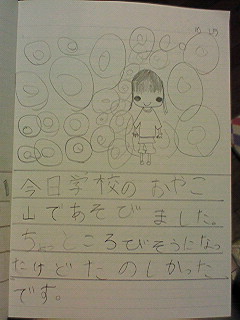 今日学校の おやこ
山であそび ました。
ちょところびそうになっ
たけどたのしかった
です。